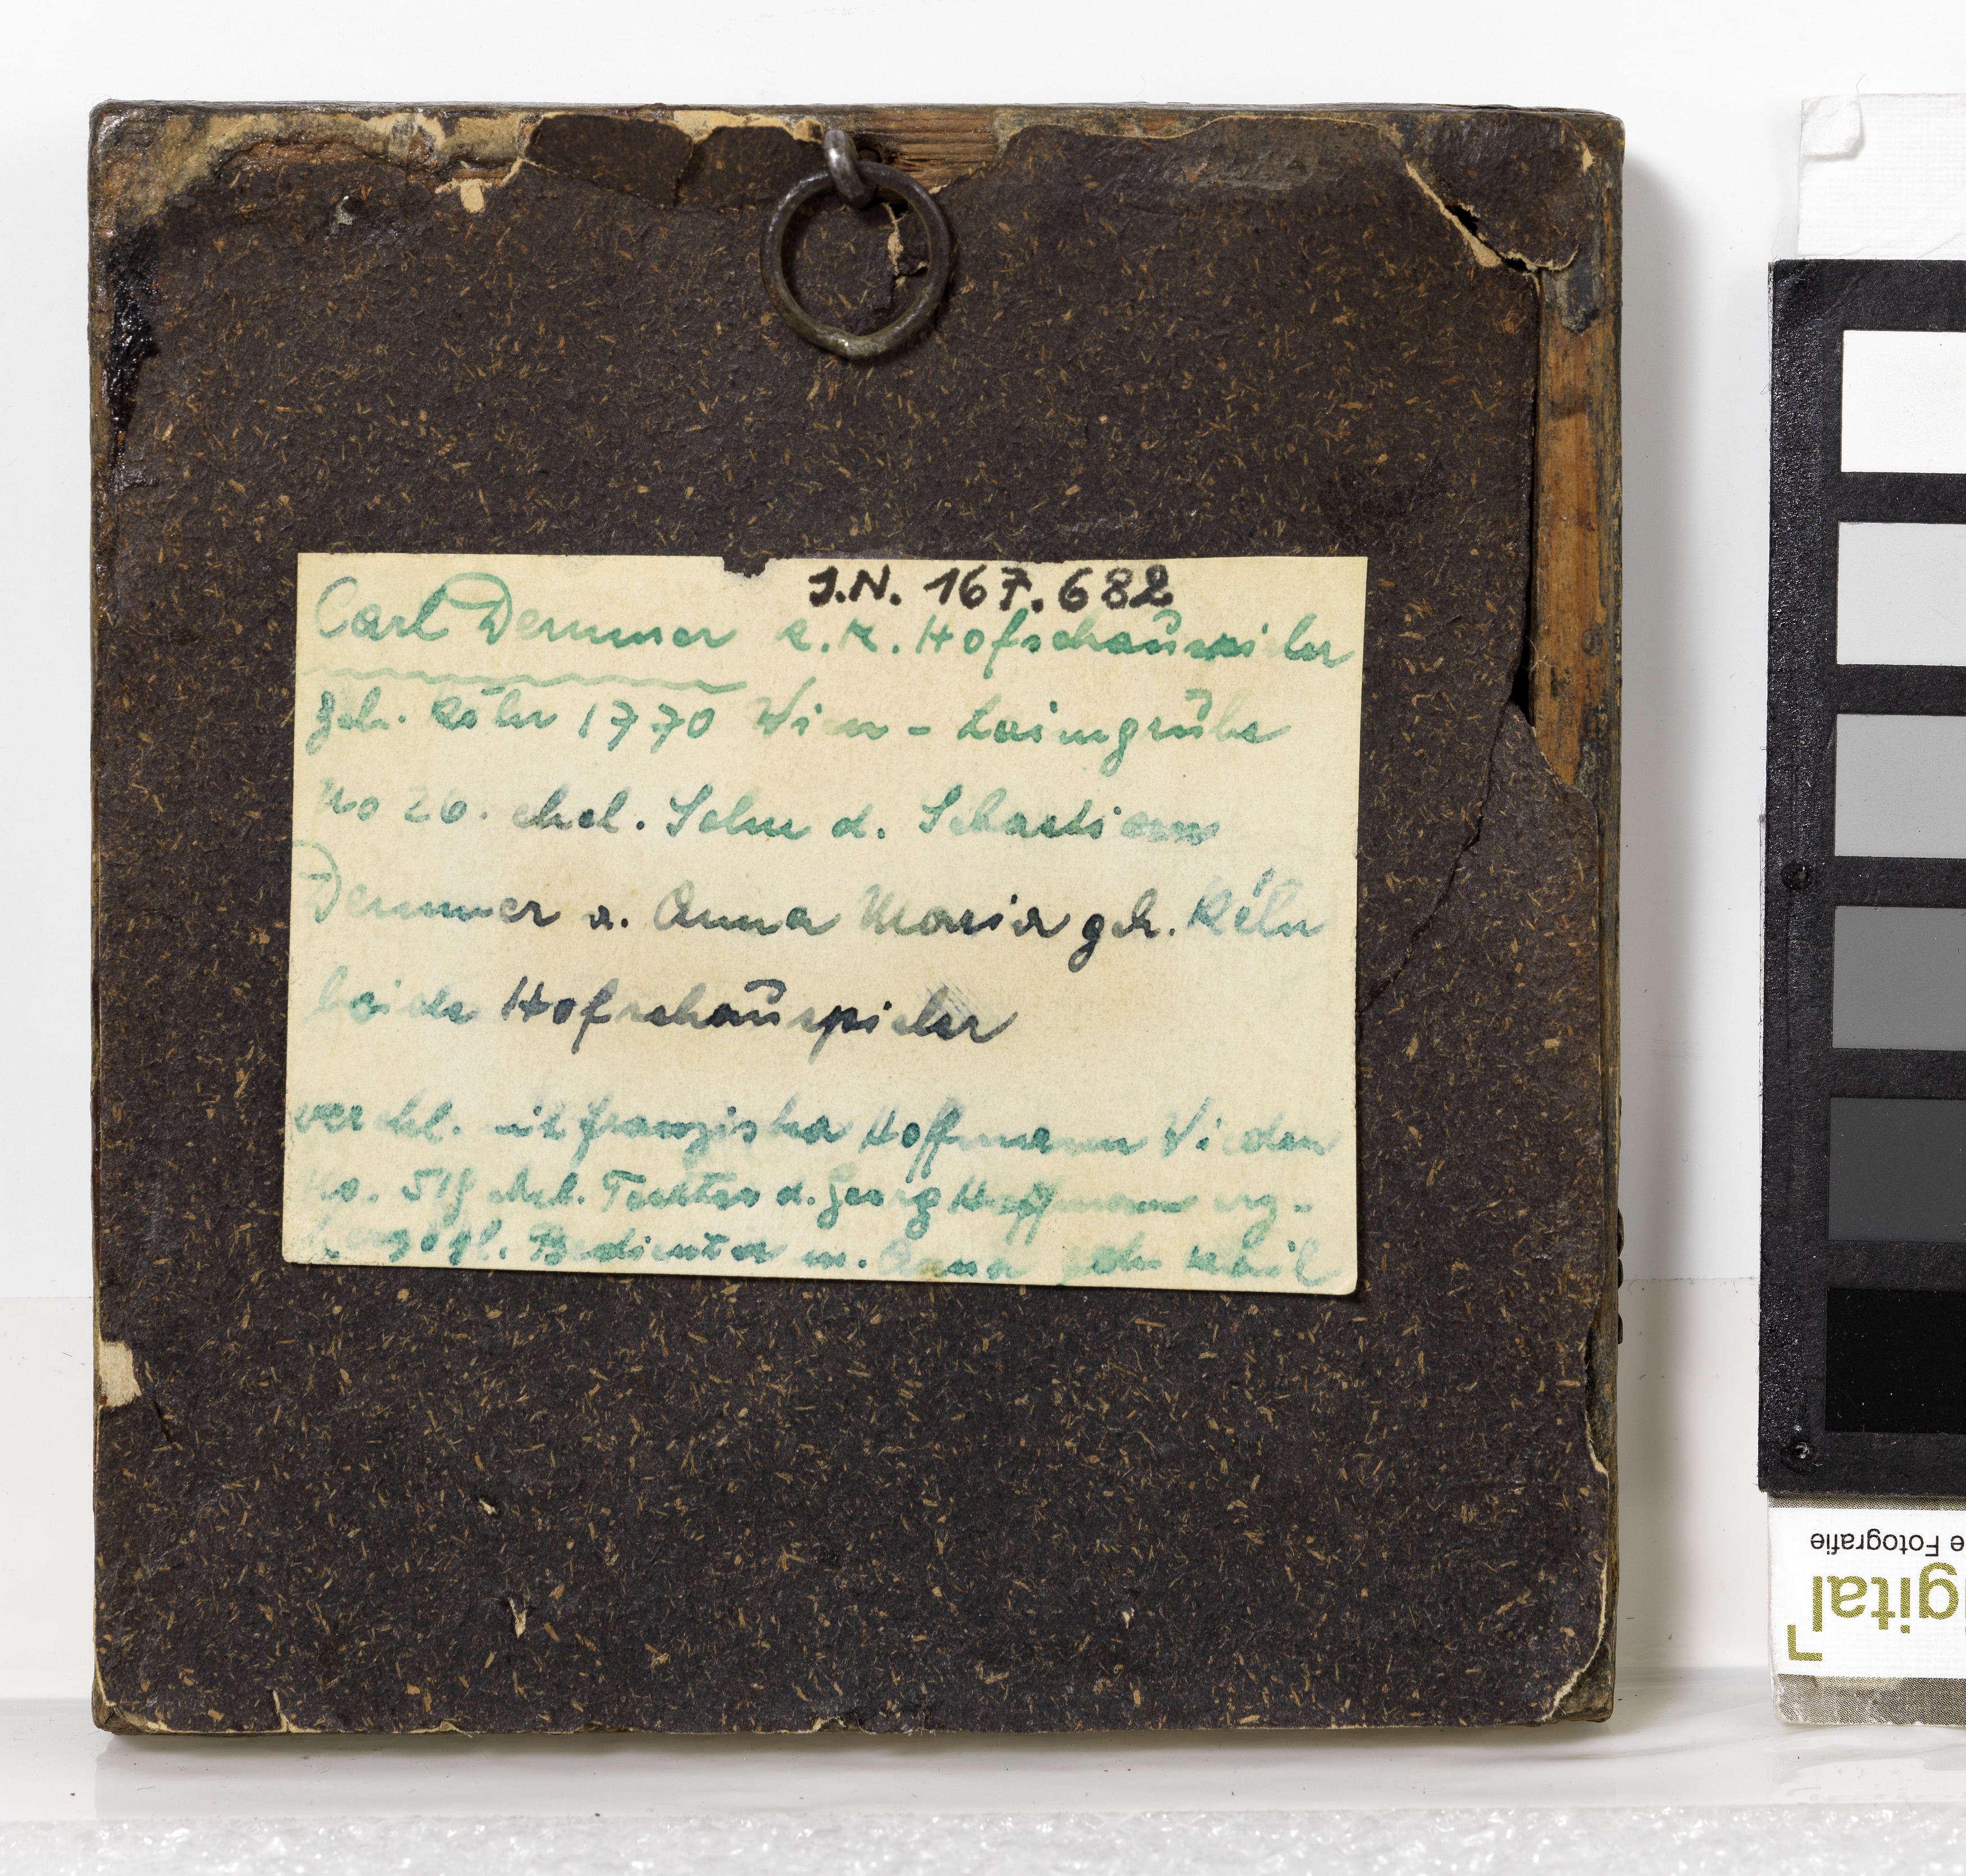 J.N. 167.682
Carl Demmer k. K. Hofschaŭspieler
geb. Köln 1770 Wien - Laimgrŭbe
No 26. ehel. Sohn d. Sebastian
Demmer u. Anna Maria geb. Köln
beide Hofschaŭspieler
verehl. mit Franziska Hoffmann Wieden
No. 519 ehel. Tochter d. Georg Hoffmann erz-
herzogl. Bedienter u. Anna
e Fotografie
gital